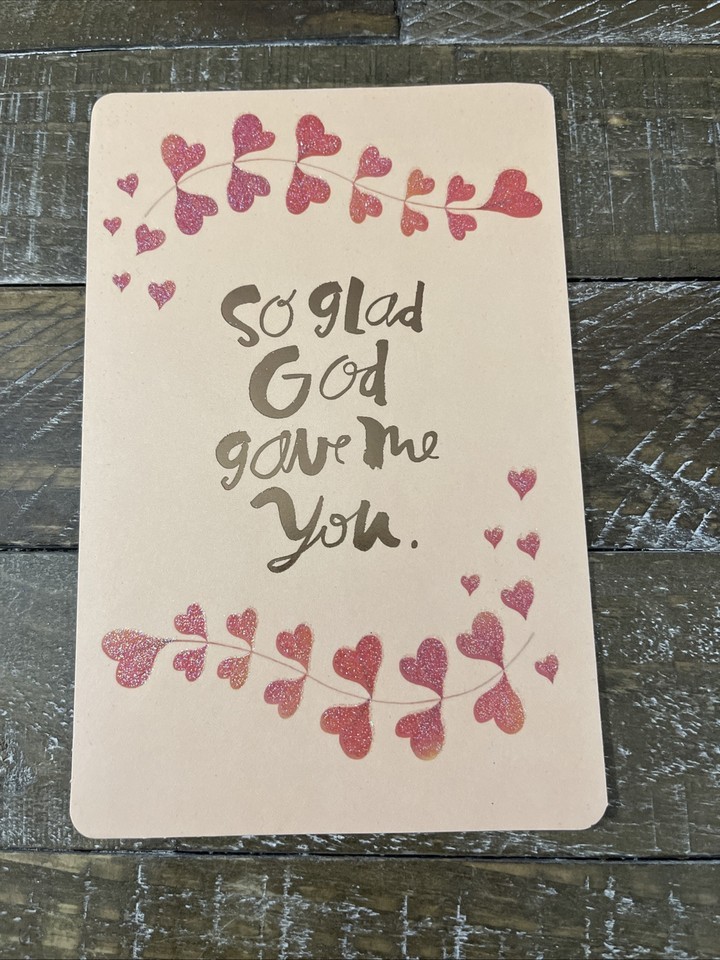 So glad
God
gave me
you.